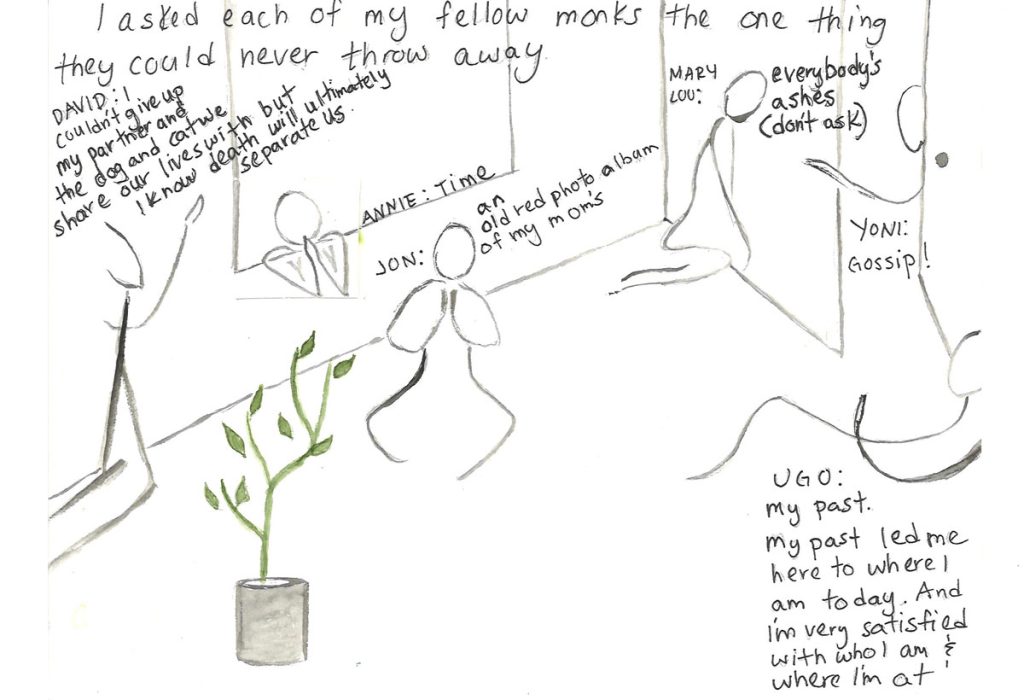 I asked each of my fellow monks the one thing
they could never throw away.
DAVID: I
couldn't give up
my partner and
the dog and cat we
share our lives with but
I know death will ultimately
separate us.
ANNIE: Time
JON: an
old red photo album
of my mom's
MARY
LOU: everybody's
ashes
(don't ask)
YONI:
Gossip!
UGO:
my past.
my past led me
here to where I
am today. And
I'm very satisfied
with who I am &
where I'm at